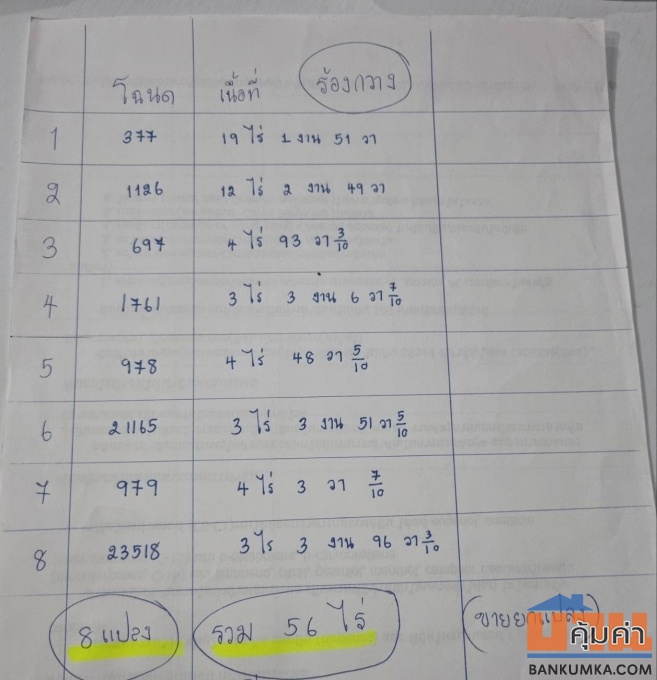 โฉนด เนื้อที่ ร้องกวาง
1 377 19 ไร่ 1 งาน 51 วา
2 1126 12 ไร่ 2 งาน 49 วา
3 697 4 ไร่ 93 วา 3/10
4 1761 3 ไร่ 3 งาน 6 วา 7/10
5 978 4 ไร่ 48 วา 5/10
6 21165 3 ไร่ 3 งาน 51 วา 5/10
7 979 4 ไร่ 3 วา 7/10
8 23518 3 ไร 3 งาน 96 วา 3/10
8 แปลง รวม 56 ไร่ (ขายยกแปลง)
บ้าน
คุ้มค่า
BANKUMKA.COM